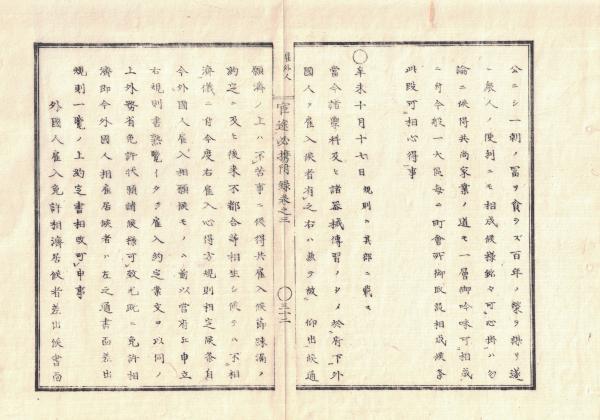 公ニシ一朝ノ冨ヲ貪ラズ百年ノ榮ヲ謀リ遂
ニ衆人ノ便利ニモ相成候様銘々可心掛ハ勿
論ニ候得共尚家業ノ道モ一層御吟味可相成
ニ付今般一大區毎ニ町會所御取建相成候条
此段可相心得事
〇辛未十月十七日 規則ハ其部ニ載ス
當今諸禀料及ヒ諸器械傳習ノタメ於府下外
國人ヲ雇入候者有之右ハ兼テ被 仰出候通
雇外人
官途必携附録巻之三
〇三十二
願濟ノ上ハ不苦事ニ候得共雇入候節疎漏ノ
約定ニ及ヒ後来不都合等相生シ候テハ不相
濟儀ニ付今度右雇入心得方規則相定候条自
今外國人雇入相願候モノハ前以當府江申立
右規則書熟覧イタシ雇入約定案文ヲ以同ノ
上外務省免許状願請候様可致尤既ニ免許相
濟即今外國人相雇居候者ハ左之通書面差出
規則一覧ノ上約定書相改可申事
外國人雇入免許相濟居候者差出候書面